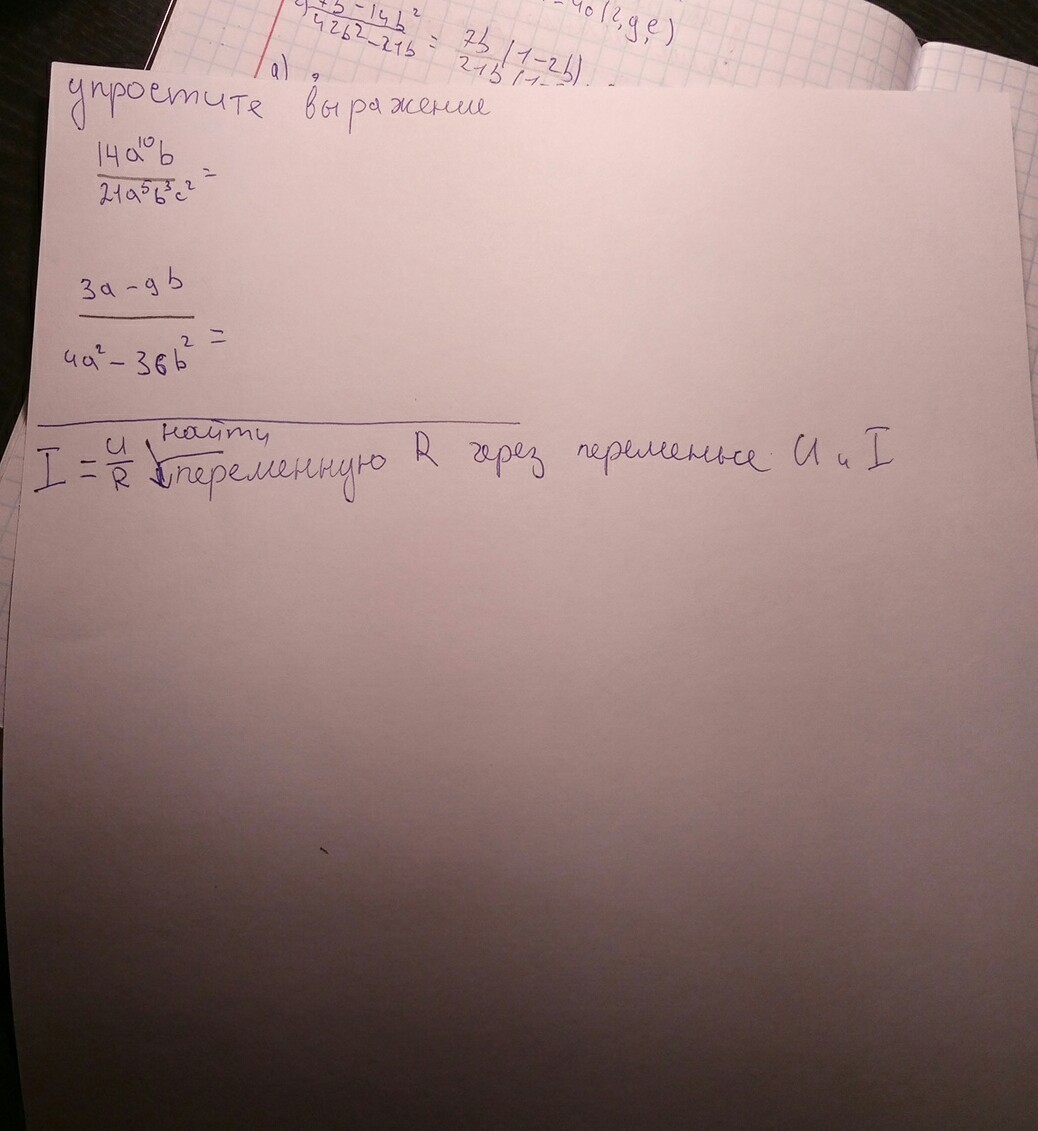 7b - 14b²
42b² - 21b = 7b (1 - 2b)
21b (1 -
а)
упростите выражение
14a¹⁰b
21a⁵b³c² =
3a - 9b
4a² - 36b² =
I = U/R найти
переменную R через переменные U и I